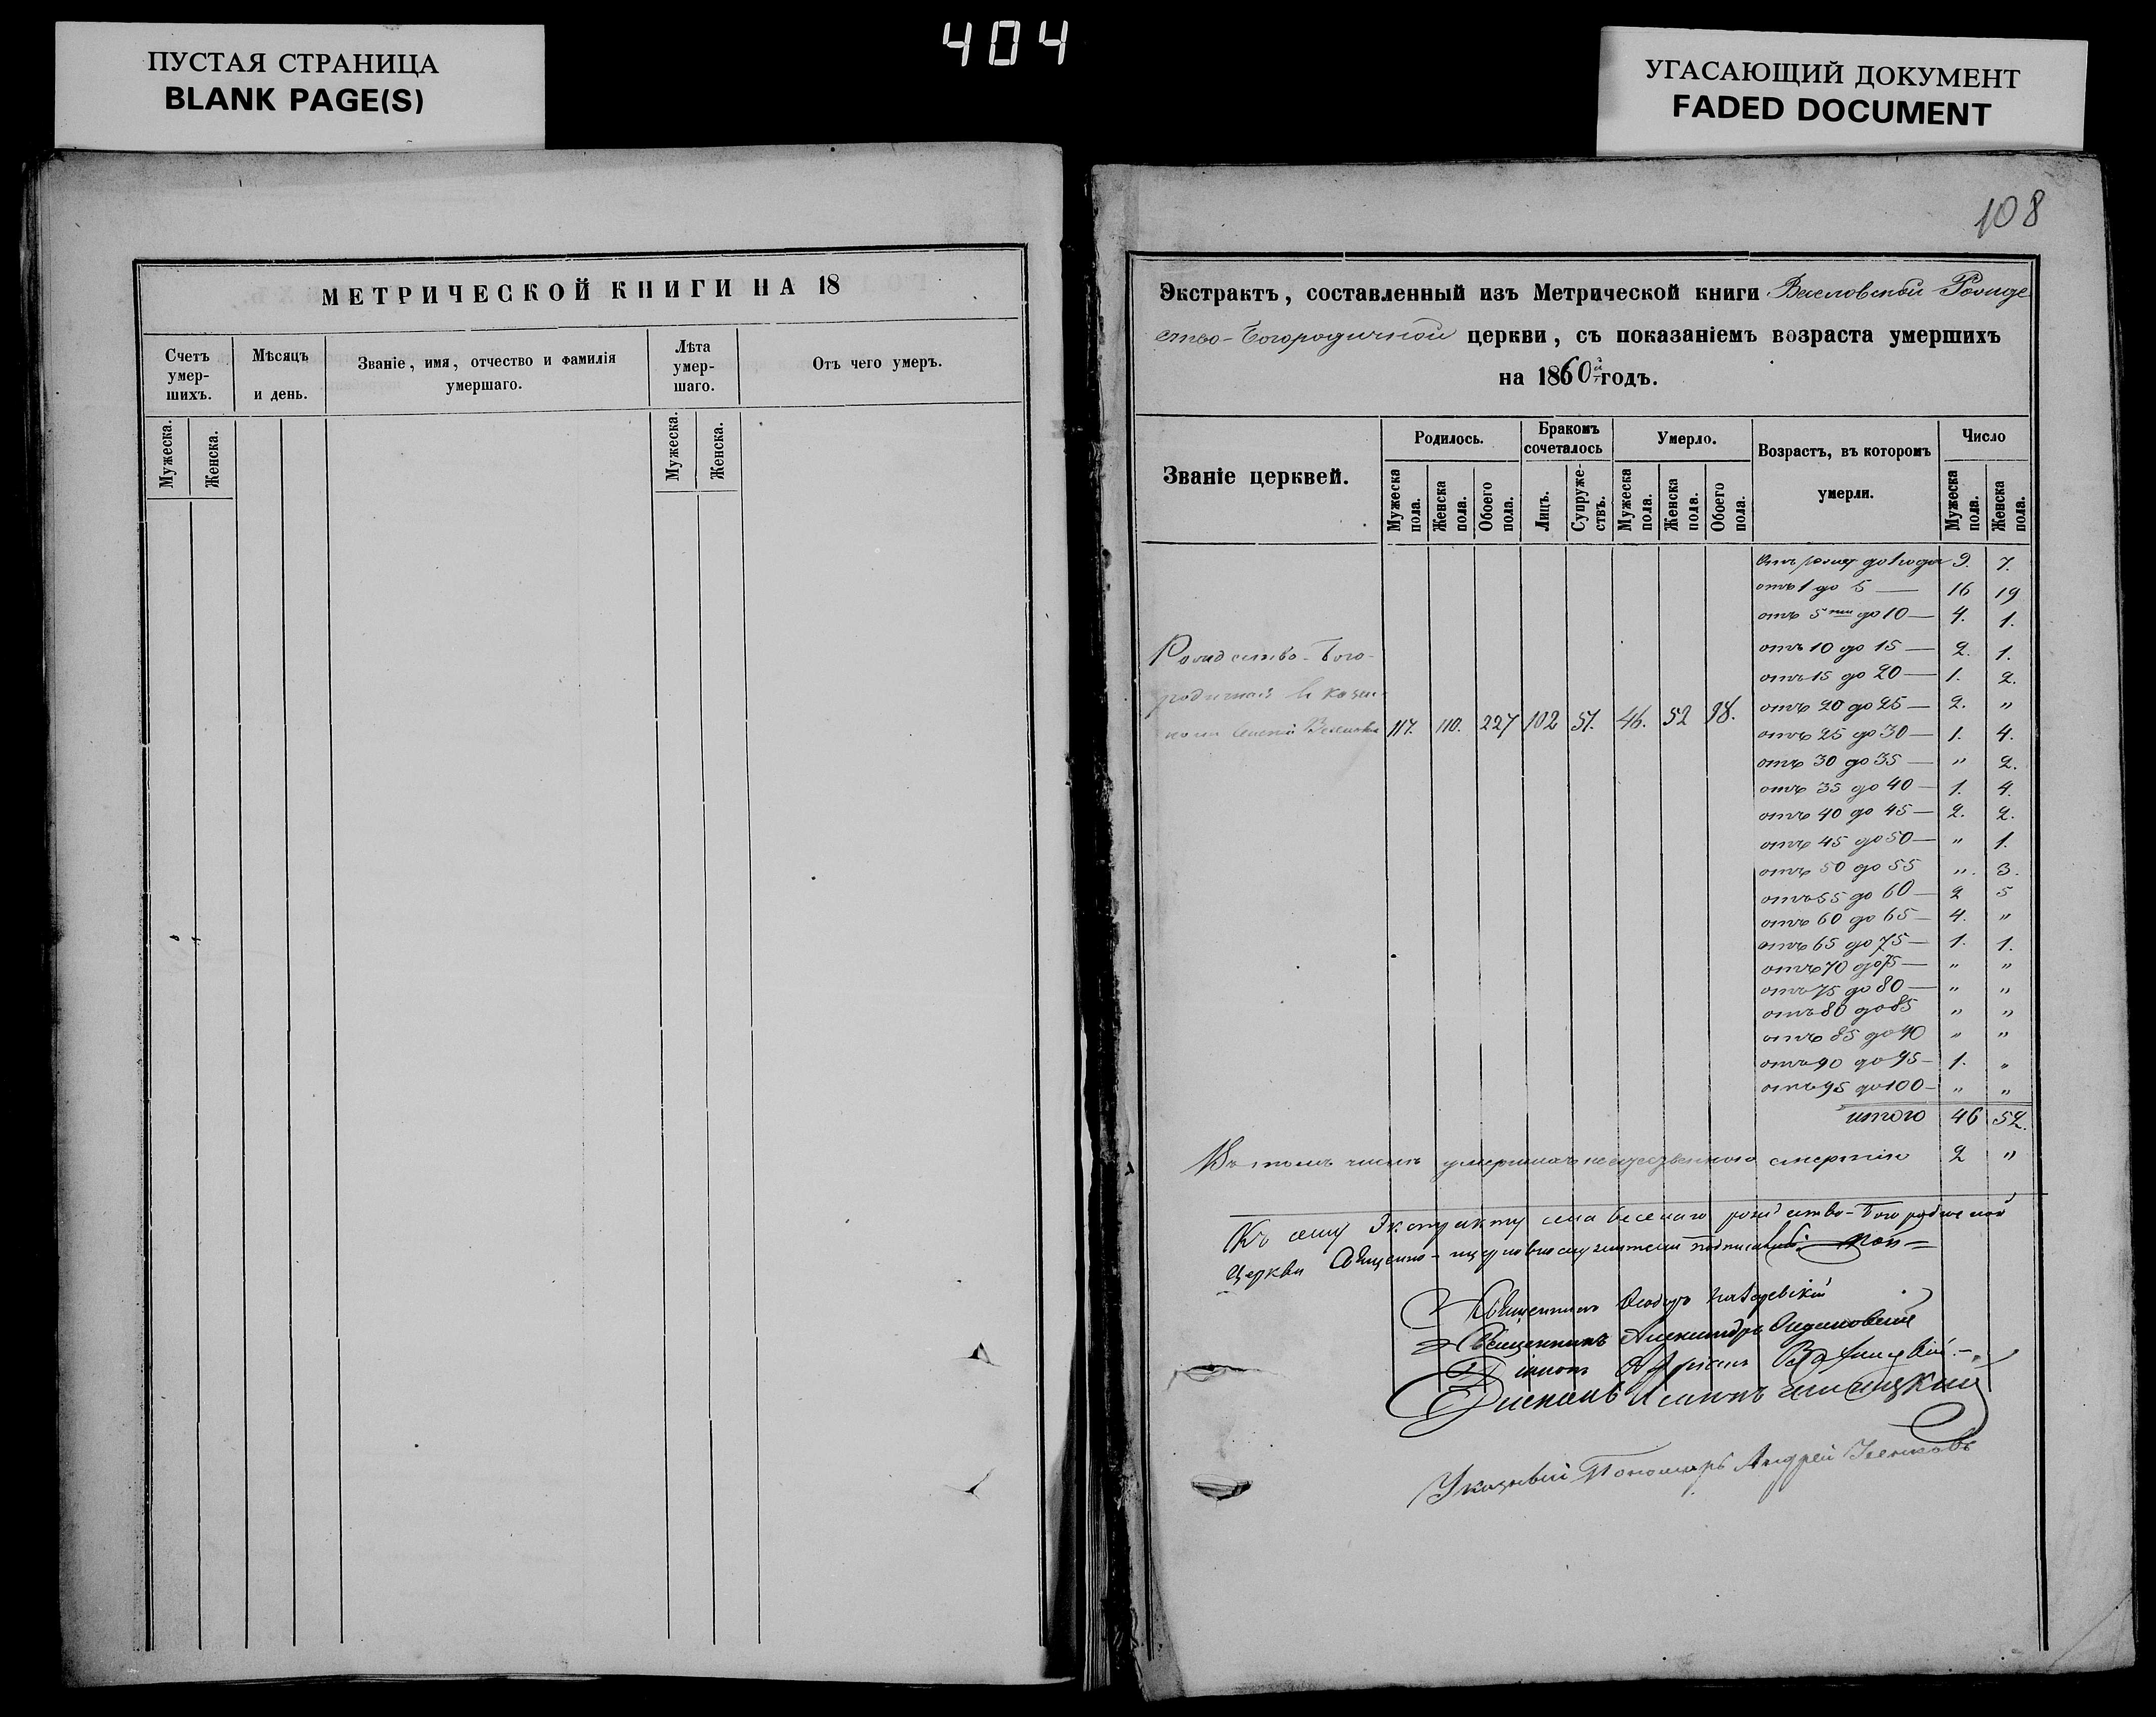 ПУСТАЯ СТРАНИЦА
BLANK PAGE(S)
404
УГАСАЮЩИЙ ДОКУМЕНТ
FADED DOCUMENT
МЕТРИЧЕСКОЙ КНИГИ НА 18
Счетъ умер-шихъ.
Мѣсяцъ и день.
Званіе, имя, отчество и фамилія умершаго.
Лѣта умер-шаго.
Отъ чего умеръ.
Мужеска.
Женска.
Мужеска.
Женска.
108
Экстрактъ, составленный изъ Метрической книги Веселовской Рожде
ство-Богородичной церкви, съ показаніемъ возраста умершихъ
на 1860й годъ.
Званіе церквей.
Родилось.
Бракомъ сочеталось
Умерло.
Возрастъ, въ которомъ умерли.
Число
Мужеска пола.
Женска пола.
Обоего пола.
Лицъ.
Супруже-ствъ.
Мужеска пола.
Женска пола.
Обоего пола.
Мужеска пола.
Женска пола.
отъ рожд до 1 года 9. 7.
отъ 1 до 5 — 16 19
отъ 5ти до 10 — 4. 1.
отъ 10 до 15 — 2. 1.
отъ 15 до 20 — 1. 2.
отъ 20 до 25 — 2. „
отъ 25 до 30 — 1. 4.
отъ 30 до 35 — „ 2.
отъ 35 до 40 — 1. 4.
отъ 40 до 45 — 2. 2.
отъ 45 до 50 — „ 1.
отъ 50 до 55 „. 3.
отъ 55 до 60 — 2 5
отъ 60 до 65 — 4. „
отъ 65 до 75 — 1. 1.
отъ 70 до 75 — „ „
отъ 75 до 80 — „ „
отъ 80 до 85 „ „
отъ 85 до 90 „ „
отъ 90 до 95 — 1. „
отъ 95 до 100 — „ „
итого 46 52.
Рождество-Бого-
родичной в казен-
117. 110. 227 102 51. 46. 52 98.
Въ томъ числѣ умершихъ смертію 2 „
Къ сему Экстракту села Веселаго рождество-Богородичной
Церкви Священно-церковнослужители
Священникъ Ѳеодоръ
Священникъ Александръ
Діаконъ
Указный Пономарь Андрей